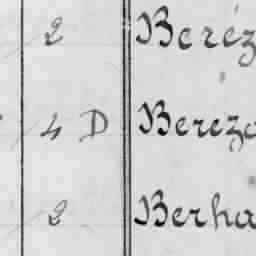 2 Beréz
4 D Berez
2 Berha